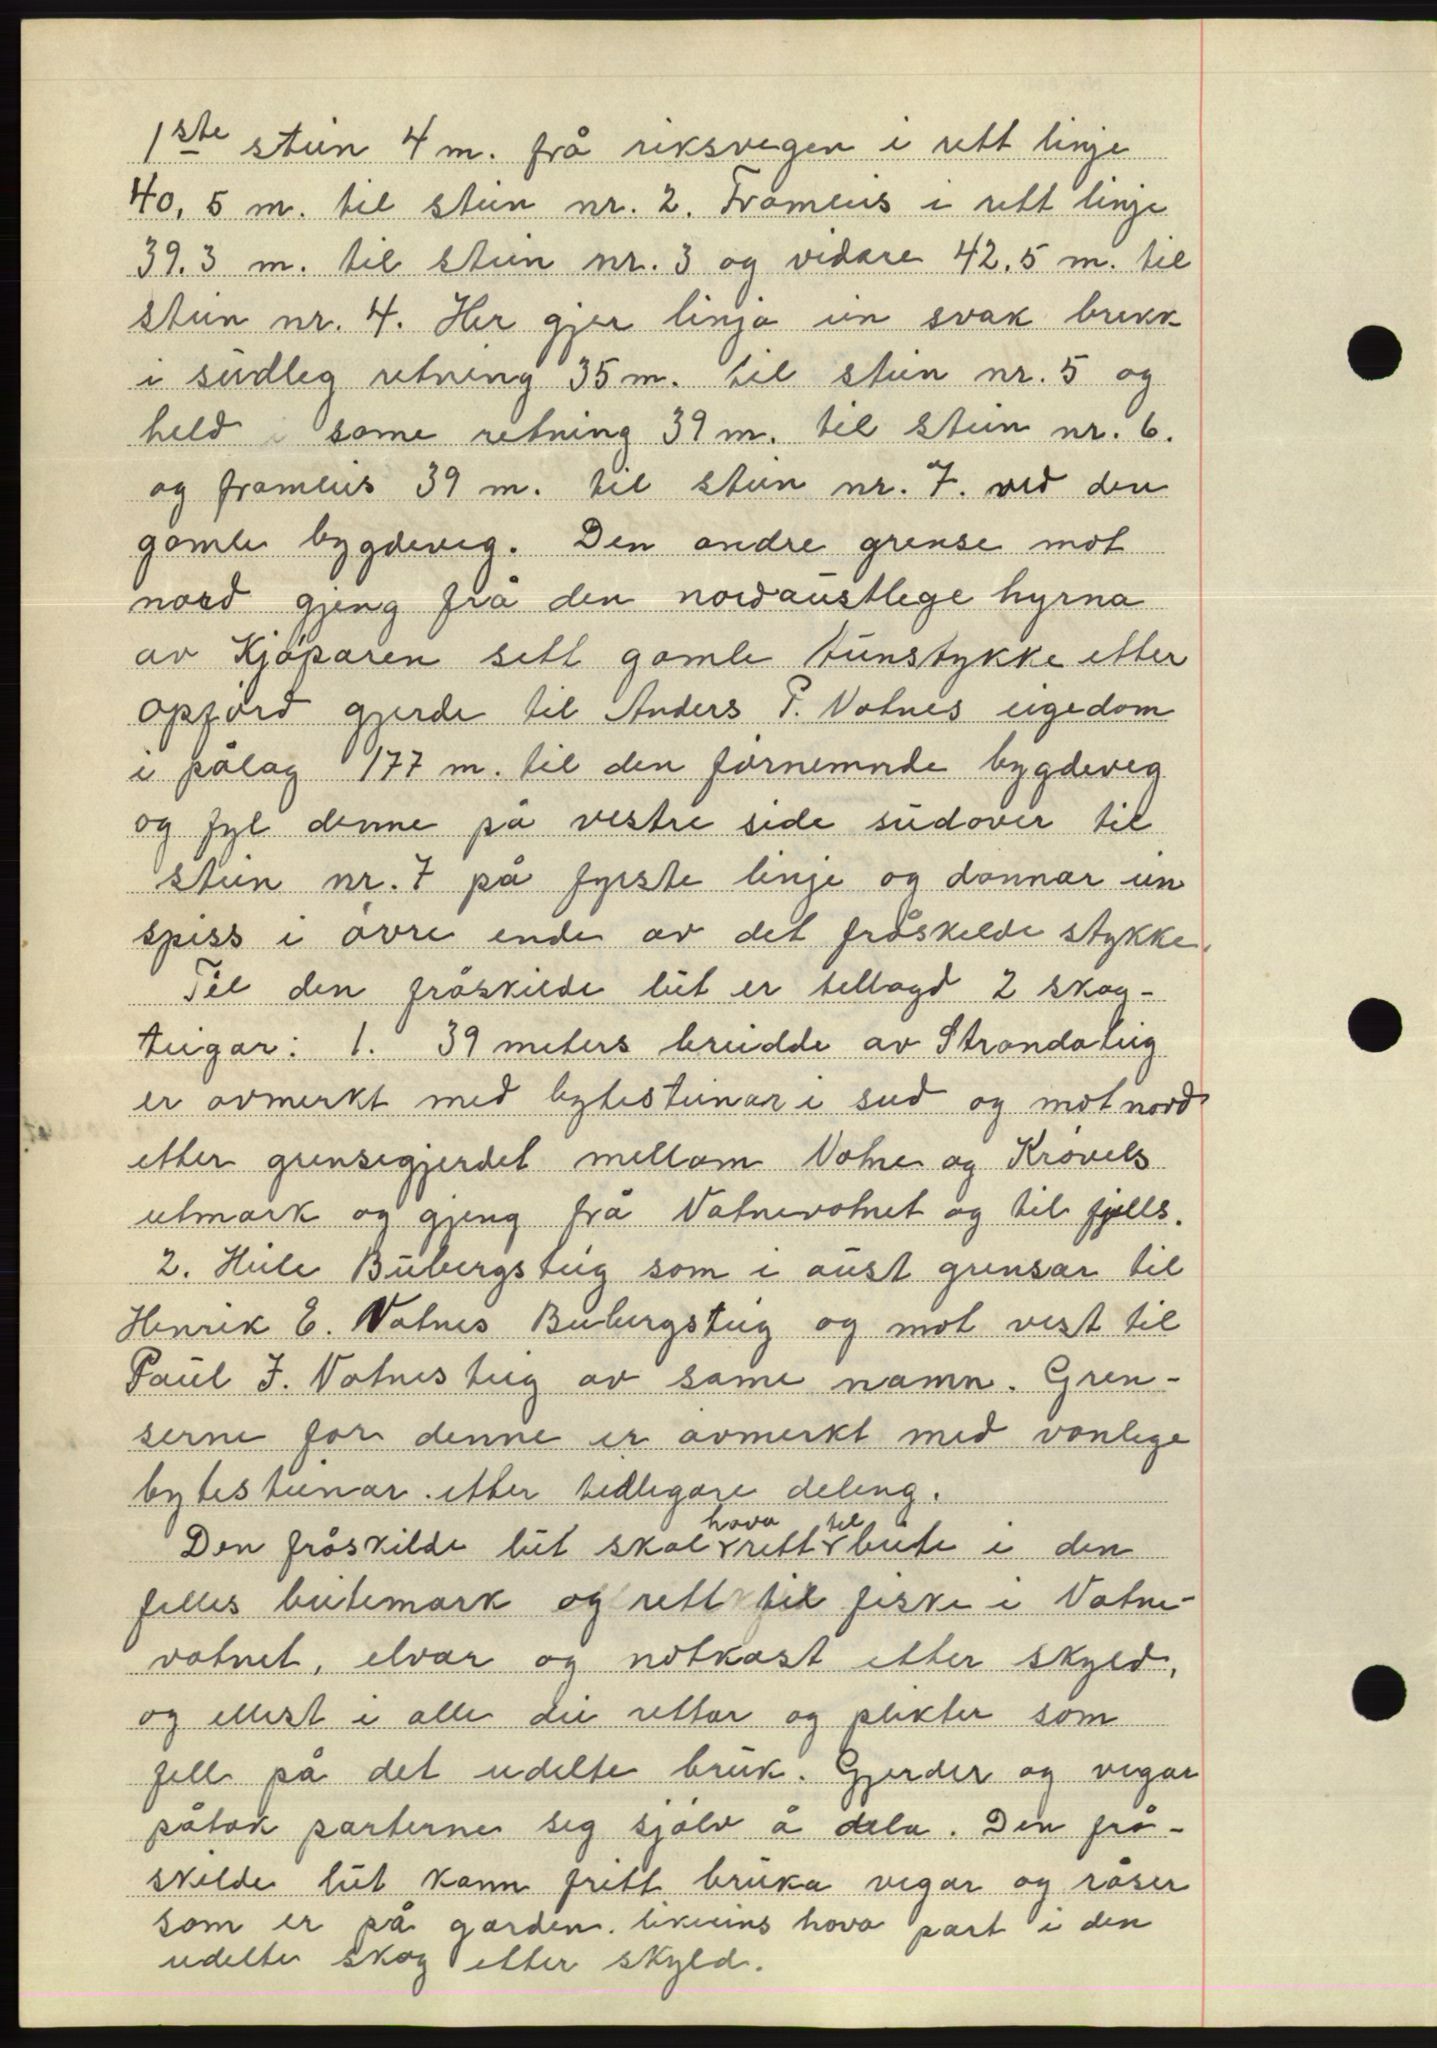 1ste stein 4 m. frå riksvegen i rett linje
40,5 m. til stein nr. 2. Frameleis i rett linje
39.3 m. til stein nr. 3 og vidare 42.5 m. til
stein nr. 4. Her gjer linja ein svak brekk
i sudleg retning 35 m. til stein nr. 5 og
held i same retning 39 m. til stein nr. 6.
og frameleis 39 m. til stein nr. 7. ved den
gamle bygdeveg. Den andre grense mot
nord gjeng frå den nordaustlege hyrna
av Kjøparen sett gamle tunstykke etter
oppførd gjerde til Anders P. Vatnes eigedom
i pålag 177 m. til den førnemnde bygdeveg
og fyl denne på vestre side sudover til
stein nr. 7 på fyrste linje og dannar ein
spiss i øvre ende av det fråskilde stykke.
Til den fråskilde lut er tillagd 2 skog-
teigar: 1. 39 meters breidde av Strandateig
er avmerkt med bytesteinar i sud og mot nord
etter grensegjerdet mellom Vatne og Krøvels
utmark og gjeng frå Vatnevatnet og til fjells.
2. Heile Bubergsteig som i aust grensar til
Henrik E. Vatnes Bubergsteig og mot vest til
Paul J. Vatnes teig av same namn. Gren-
serne for denne er avmerkt med vanlege
bytesteinar etter tidlegare deling.
Den fråskilde lut skal hava rett til beite i den
felles beitemark og rett til fiske i Vatne-
vatnet, elvar og notkast etter skyld,
og ellest i alle dei rettar og plikter som
fell på det udelte bruk. Gjerder og vegar
påtok parterne seg sjølv å dela. Den frå-
skilde lut kann fritt bruka vegar og råser
som er på garden. likeeins hava part i den
udelte skog etter skyld.